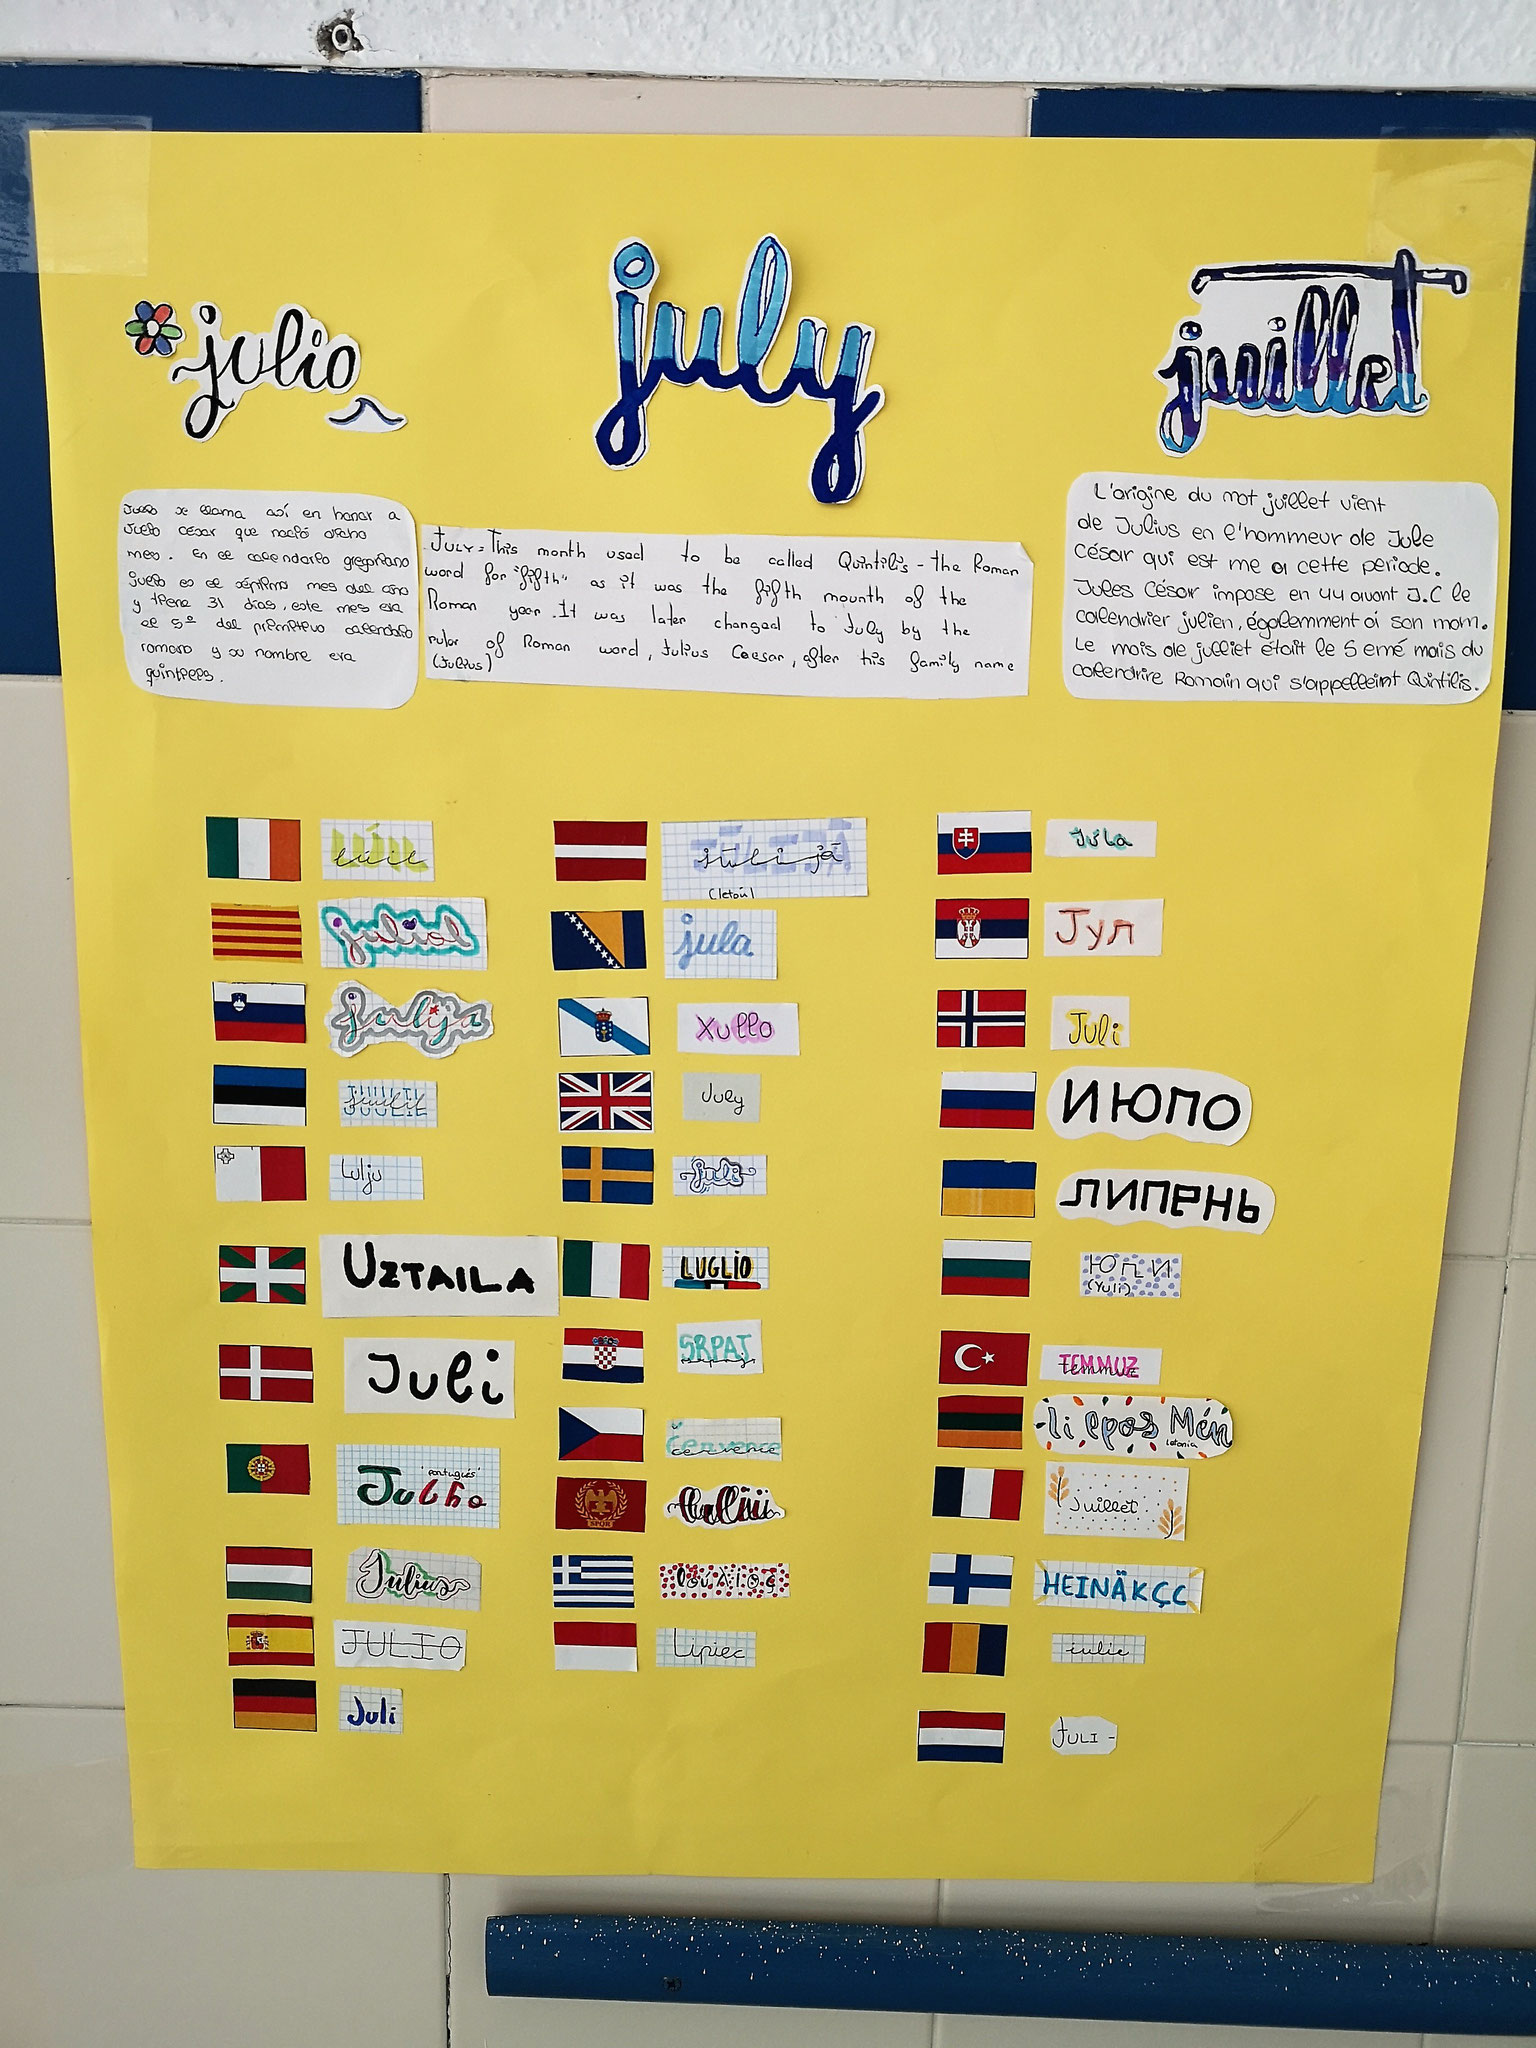 julio
july
juillet
Julio se llama así en honor a
Julio césar que nació dicho
mes. En el calendario gregoriano
julio es el séptimo mes del año
y tiene 31 días, este mes era
el 5º del primitivo calendario
romano y su nombre era
quintilis.
JULY = This month used to be called Quintilis - the Roman
word for "fifth" as it was the fifth mounth of the
Roman year. It was later changed to July by the
rulor of Roman word, Julius Caesar, after his family name
(Julius)
L'origine du mot juillet vient
de Julius en l'hommeur de Jule
César qui est me a cette periode.
Jules César impose en 44 avant J.C le
calendrier julien, égalemment à son mom.
Le mois de julliet était le 5 emé mois du
calendrire Romain qui s'appelleint Quintilis.
Lúil
juliol
julija
JUULIL
juulil
Lulju
UZTAILA
Juli
"portugués"
Julho
Július
JULIO
Juli
JŪLIJĀ
jūlijā
jula
Xullo
July
juli
LUGLIO
SRPAJ
srpaj
července
Iulii
ιούλιος
Lipiec
Júla
Јул
Juli
ИЮПО
ЛИПЕНЬ
ЮЛИ
(Yuli)
TEMMUZ
temmuz
liepos Mén
Juillet
HEINÄKÇC
iulie
SPQR
JULI -